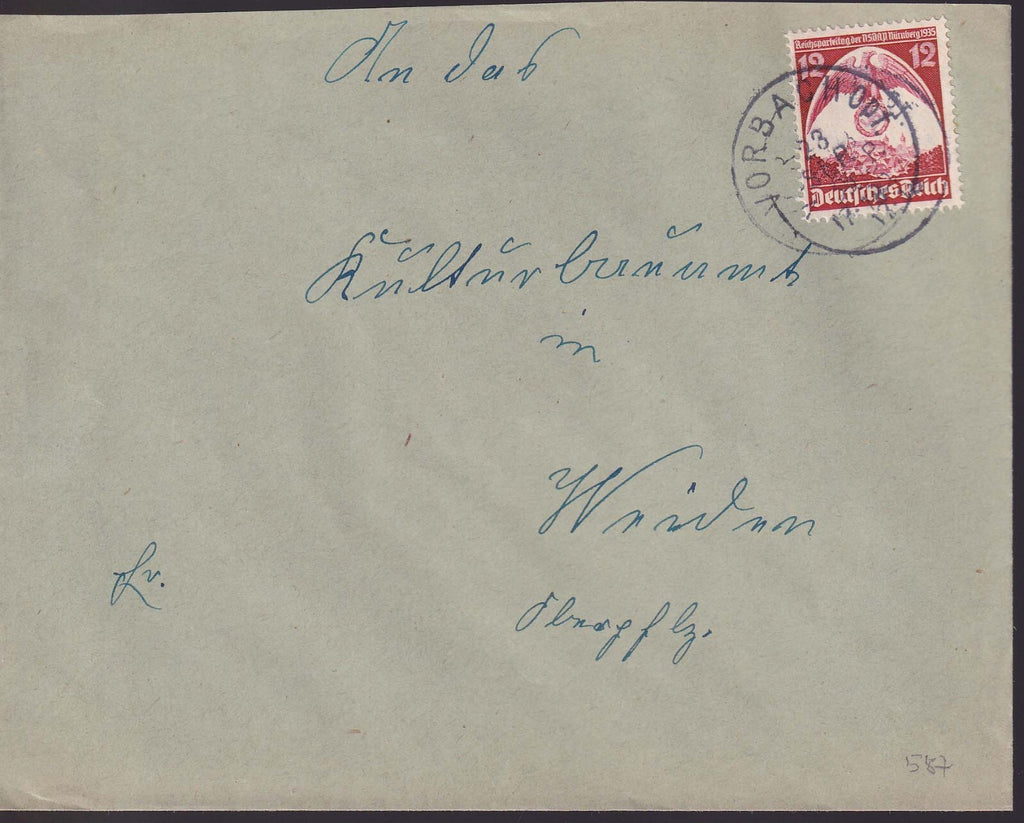 An das
Reichsparteitag der NSDAP Nürnberg 1935
12 12
Deutsches Reich
VORBACH Opf.
23
Kulturbauamt
in
Weiden
Oberpflz.
Fr.
587